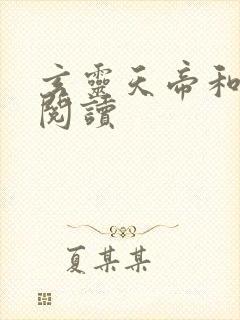 玄靈天帝和
閱讀
夏某某